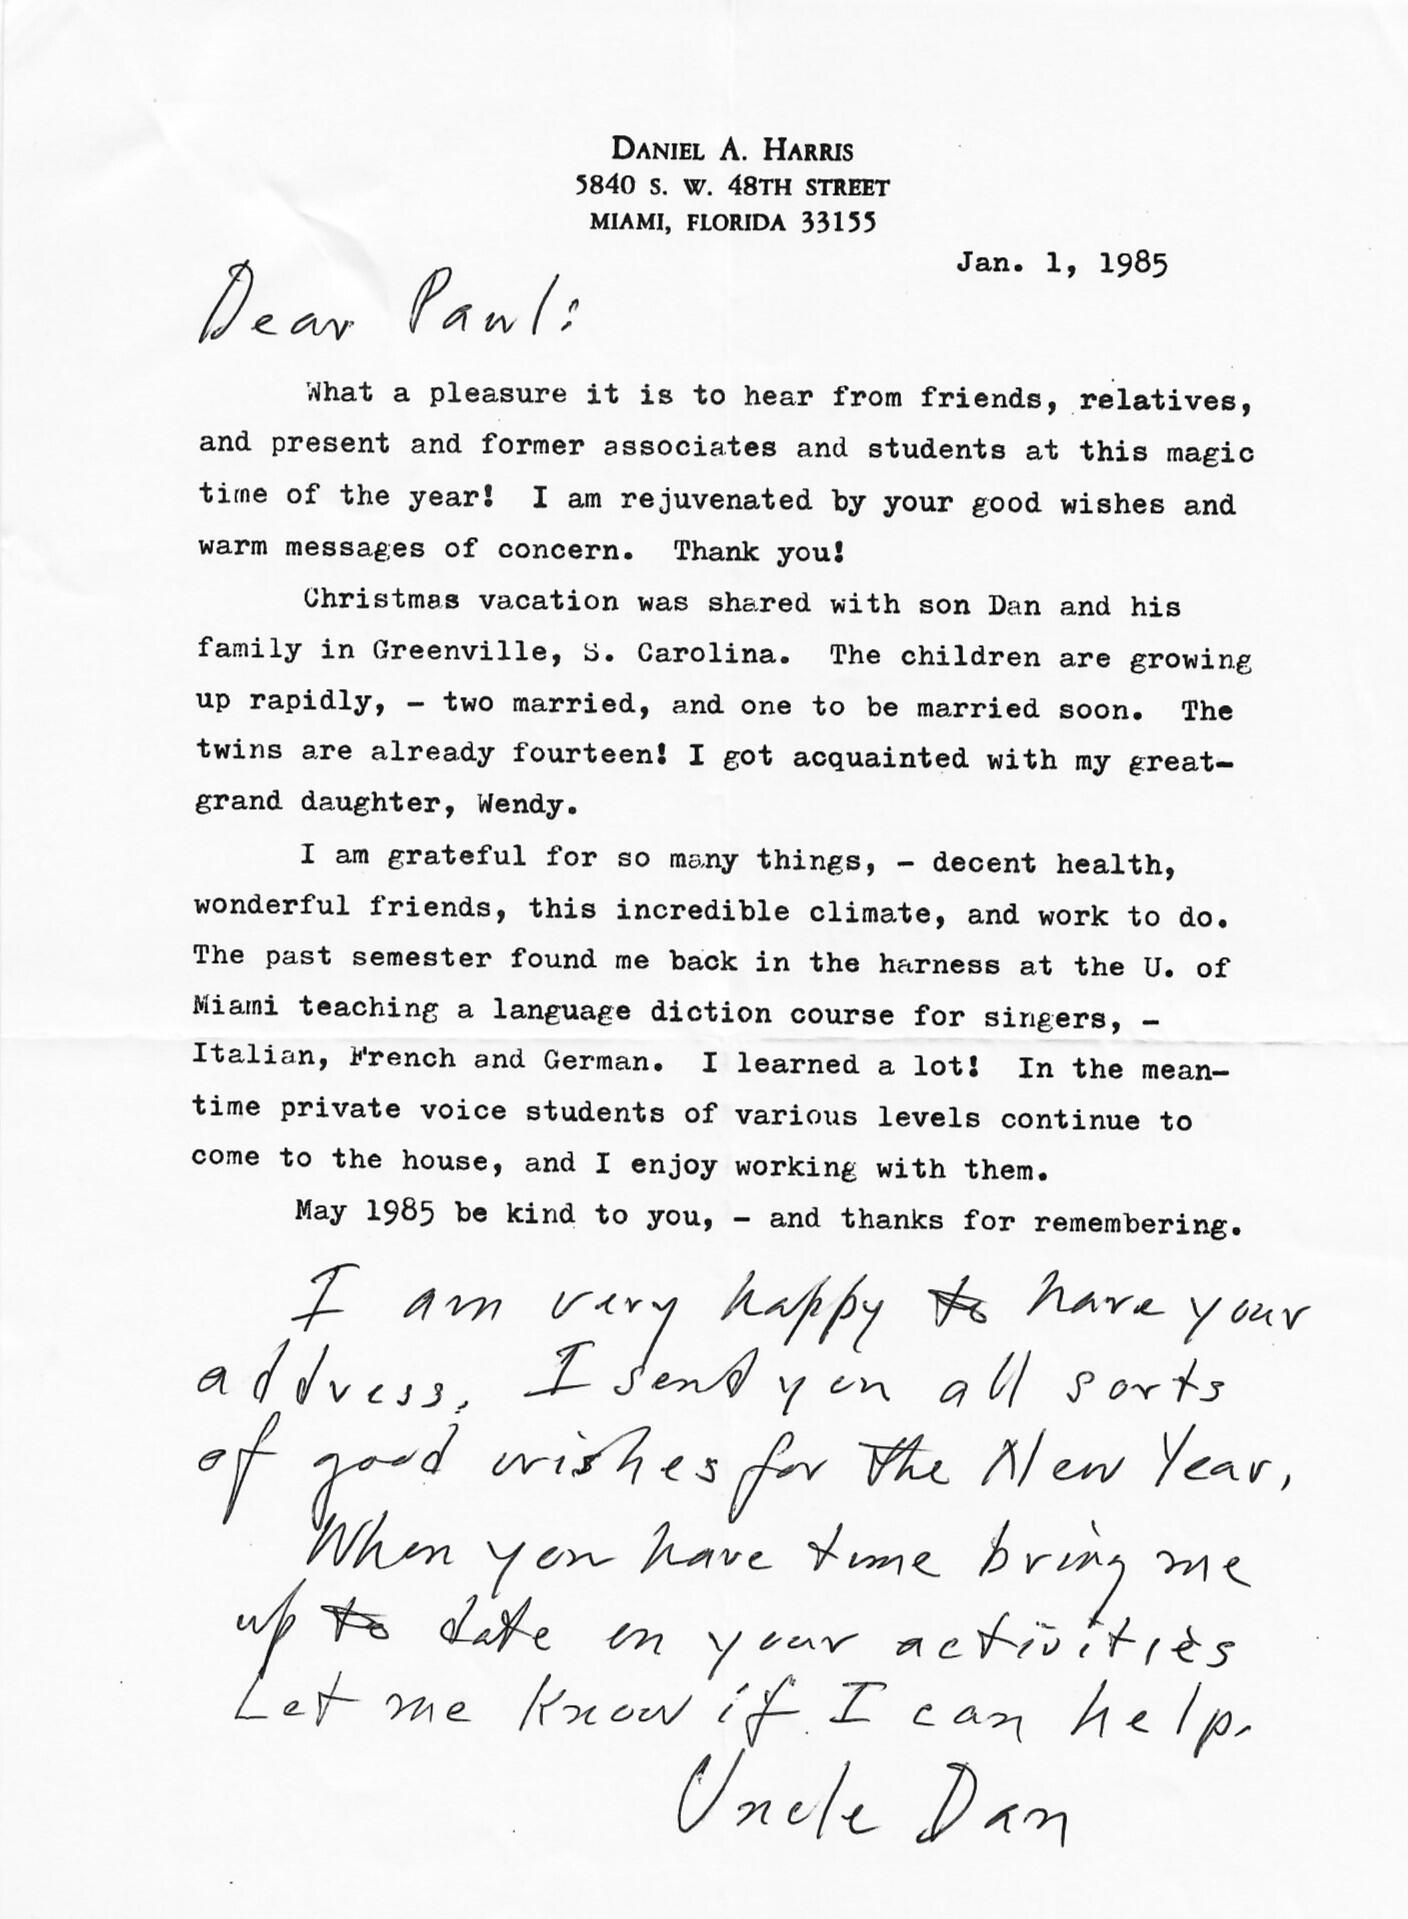 DANIEL A. HARRIS
5840 S. W. 48TH STREET
MIAMI, FLORIDA 33155
Jan. 1, 1985
Dear Paul:
What a pleasure it is to hear from friends, relatives,
and present and former associates and students at this magic
time of the year! I am rejuvenated by your good wishes and
warm messages of concern. Thank you!
Christmas vacation was shared with son Dan and his
family in Greenville, S. Carolina. The children are growing
up rapidly, - two married, and one to be married soon. The
twins are already fourteen! I got acquainted with my great-
grand daughter, Wendy.
I am grateful for so many things, - decent health,
wonderful friends, this incredible climate, and work to do.
The past semester found me back in the harness at the U. of
Miami teaching a language diction course for singers, -
Italian, French and German. I learned a lot! In the mean-
time private voice students of various levels continue to
come to the house, and I enjoy working with them.
May 1985 be kind to you, - and thanks for remembering.
I am very happy to have your
address. I send you all sorts
of good wishes for the New Year.
When you have time bring me
up to date on your activities
Let me know if I can help.
Uncle Dan